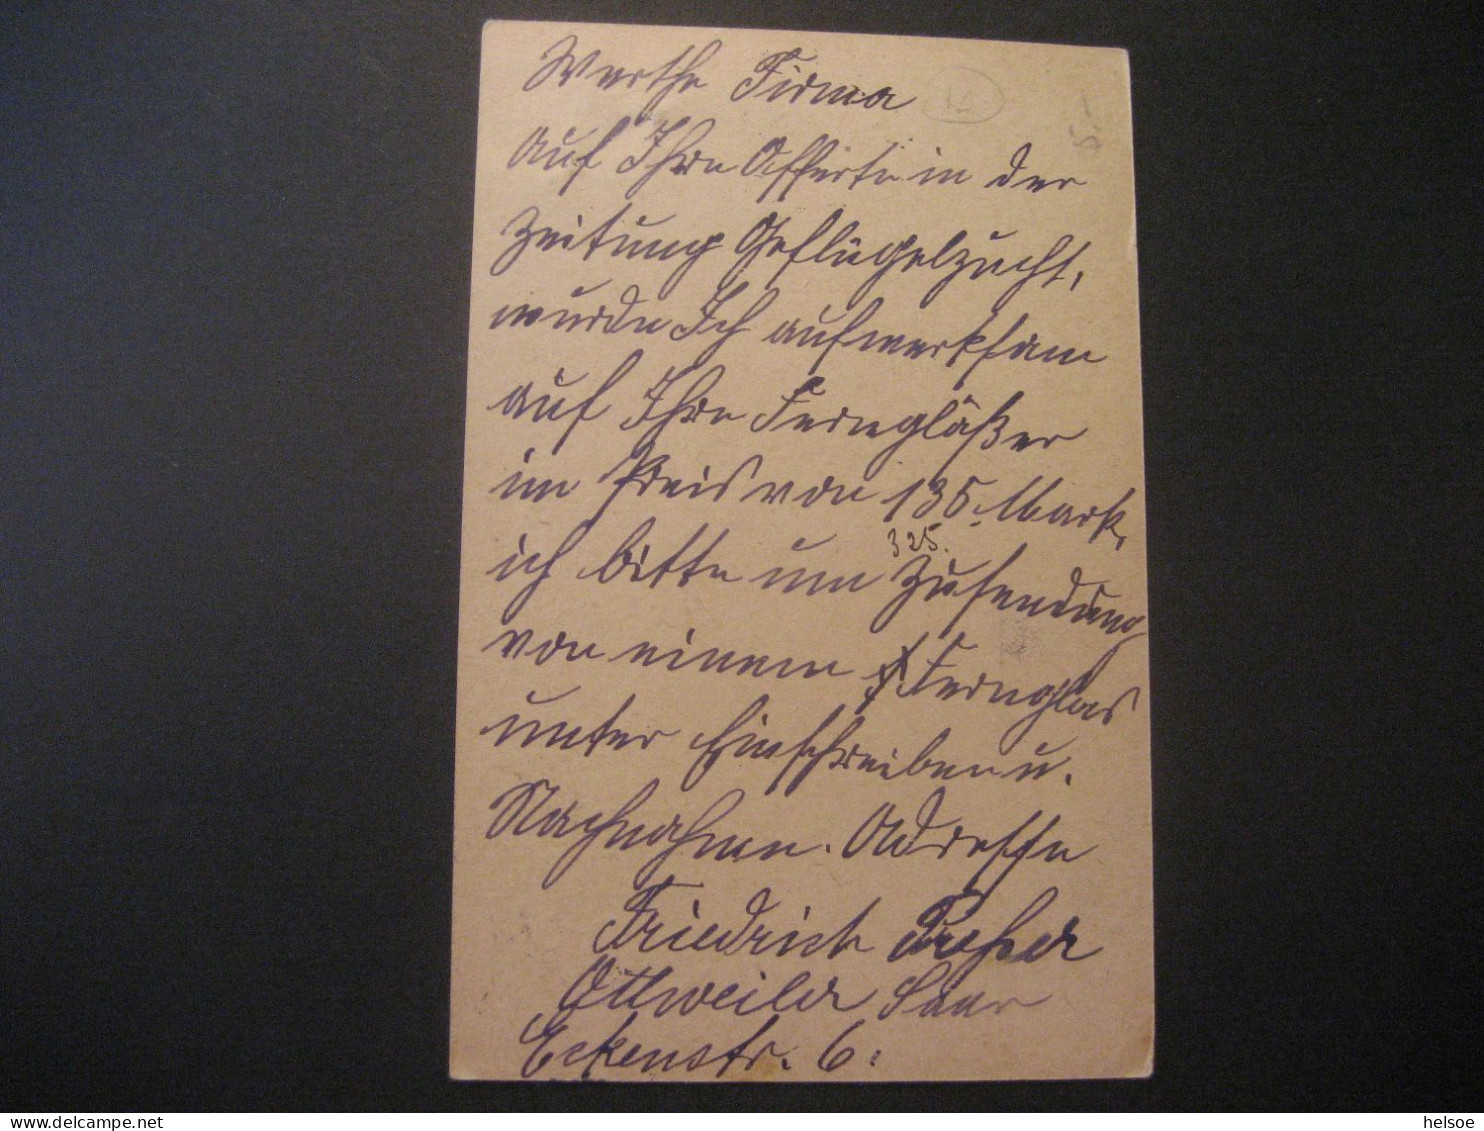 Werthe Firma
5.-
Auf Ihre Offerte in der
Zeitung Geflügelzucht,
wurde Ich aufmerksam
auf Ihre Ferngläßer
im Preis von 135. Mark,
325.
ich bitte um Zusendung
von einem Fernglas
unter Einschreiben u.
Nachnahme. Adresse
Friedrich
Ottweiler Saar
Eckenstr. 6.
helsoe